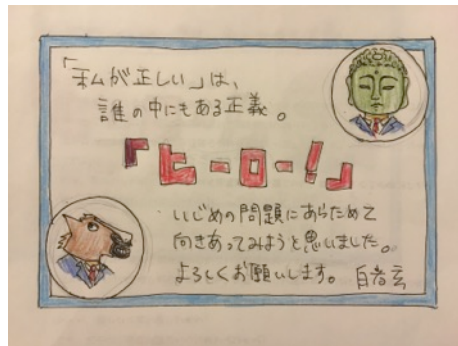 「私が正しい」は、
誰の中にもある正義。
「ヒーロー！」
いじめの問題にあらためて
向きあってみようと思いました。
よろしくお願いします。